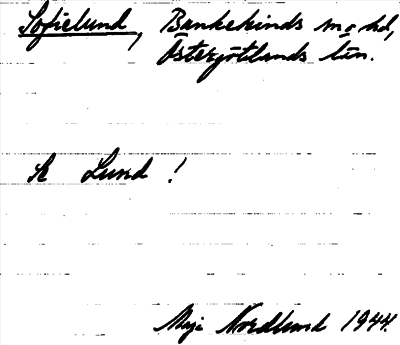 Sofielund, Bankekinds sn o hd,
Östergötlands län.
Se Lund!
Maja Nordlund 1944.